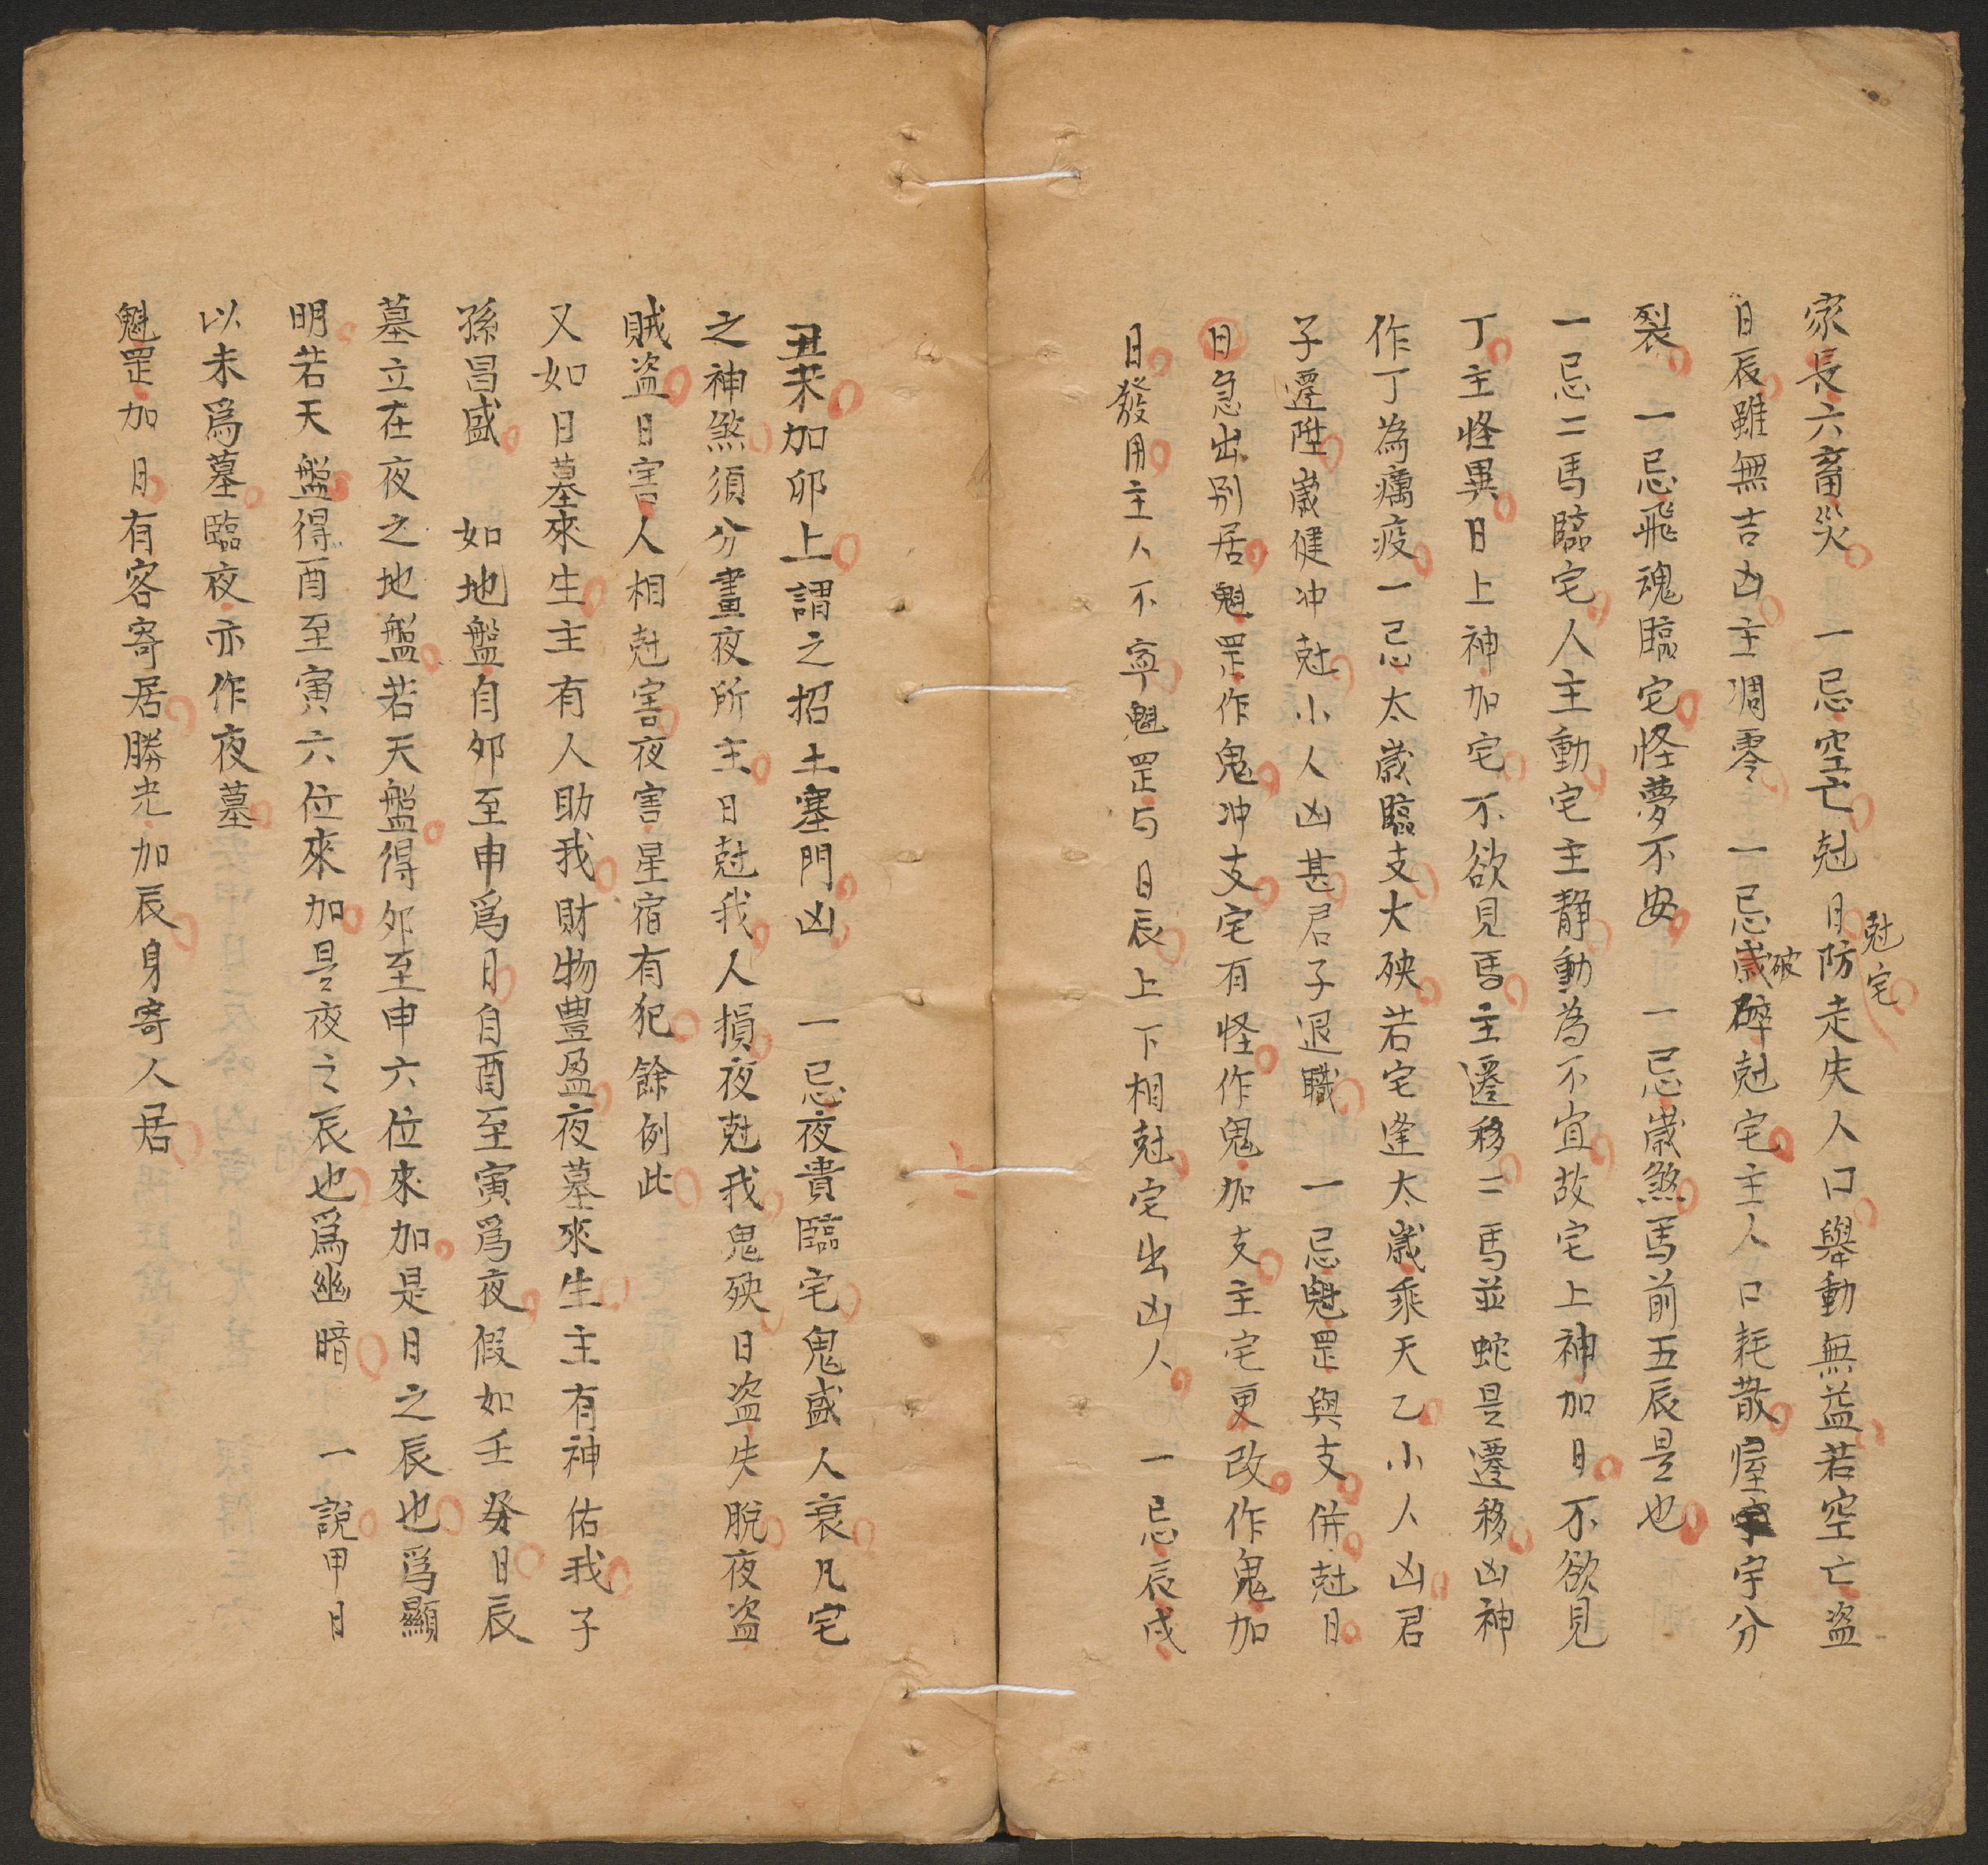 家長六畜災　一忌空亡尅日防走失人口舉動無益若空亡盜
尅宅
日辰雖無吉凶主凋零　一忌歲破碎尅宅主人口耗散屋宇分
裂　一忌飛魂臨宅怪夢不安　一忌歲煞馬前五辰是也
一忌二馬臨宅人主動宅主静動為不宜故宅上神加日不欲見
丁主怪異日上神加宅不欲見馬主遷移二馬並蛇是遷移凶神
作丁為癘疫一忌太歲臨支大殃若宅逢太歲乘天乙小人凶君
子遷陞歲健冲尅小人凶甚君子退職　一忌魁罡與支併尅日
日急出别居魁罡作鬼冲支宅有怪作鬼加支主宅更改作鬼加
日發用主人不寧魁罡与日辰上下相尅宅出凶人　一忌辰戌
丑未加卯上謂之招土塞門凶　一忌夜貴臨宅鬼盛人衰凡宅
之神煞須分晝夜所主日尅我人損夜尅我鬼殃日盜失脫夜盜
賊盜日害人相尅害夜害星宿有犯餘例此
又如日墓來生主有人助我財物豐盈夜墓來生主有神佑我子
孫昌盛　如地盤自夘至申爲日自酉至寅爲夜假如壬癸日辰
墓立在夜之地盤若天盤得夘至申六位來加是日之辰也爲顯
明若天盤得酉至寅六位來加是夜之辰也爲幽暗　一說甲日
以未爲墓臨夜亦作夜墓
魁罡加日有客寄居勝光加辰身寄人居